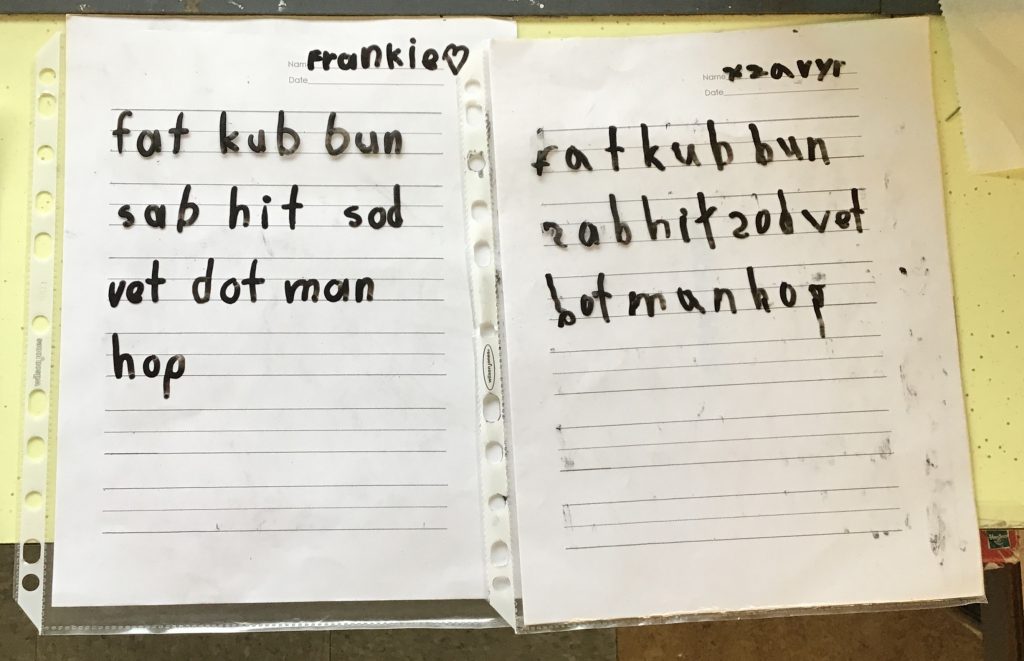 Name Frankie♡
Date
fat kub bun
sab hit sod
vet dot man
hop
wilson jones
wilson jones
Name xzavyr
Date
fat kub bun
zab hit zod vet
bot man hop